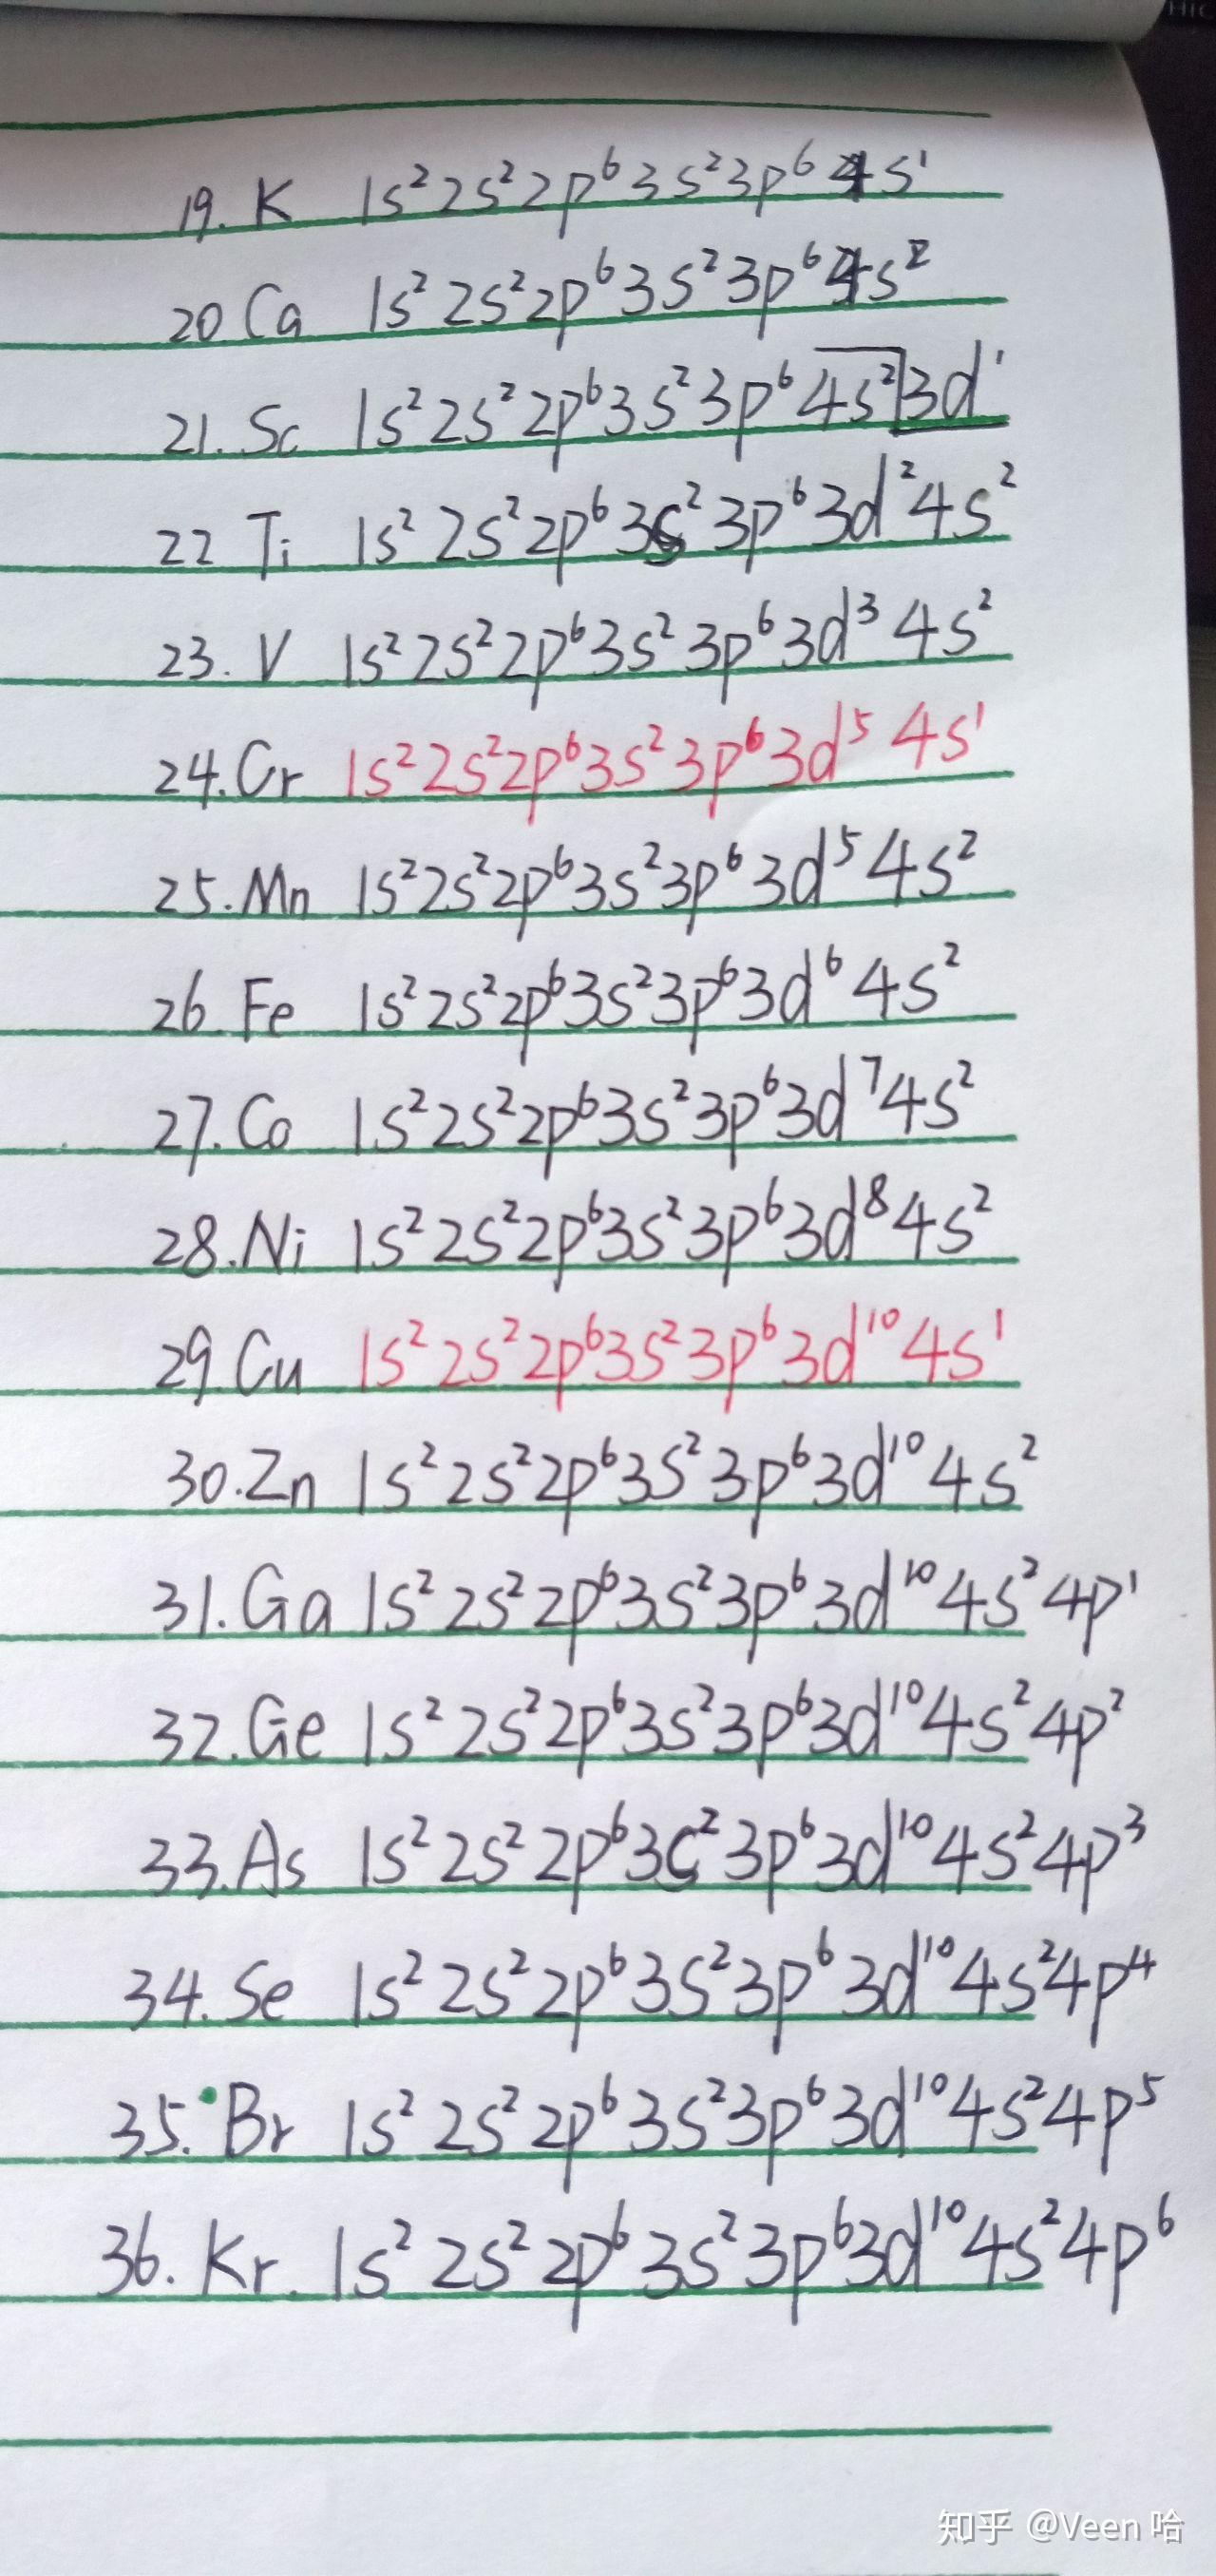 19. K 1s²2s²2p⁶3s²3p⁶4s¹
20 Ca 1s²2s²2p⁶3s²3p⁶4s²
21. Sc 1s²2s²2p⁶3s²3p⁶4s²3d¹
22 Ti 1s²2s²2p⁶3s²3p⁶3d²4s²
23. V 1s²2s²2p⁶3s²3p⁶3d³4s²
24. Cr 1s²2s²2p⁶3s²3p⁶3d⁵4s¹
25. Mn 1s²2s²2p⁶3s²3p⁶3d⁵4s²
26. Fe 1s²2s²2p⁶3s²3p⁶3d⁶4s²
27. Co 1s²2s²2p⁶3s²3p⁶3d⁷4s²
28. Ni 1s²2s²2p⁶3s²3p⁶3d⁸4s²
29. Cu 1s²2s²2p⁶3s²3p⁶3d¹⁰4s¹
30. Zn 1s²2s²2p⁶3s²3p⁶3d¹⁰4s²
31. Ga 1s²2s²2p⁶3s²3p⁶3d¹⁰4s²4p¹
32. Ge 1s²2s²2p⁶3s²3p⁶3d¹⁰4s²4p²
33. As 1s²2s²2p⁶3s²3p⁶3d¹⁰4s²4p³
34. Se 1s²2s²2p⁶3s²3p⁶3d¹⁰4s²4p⁴
35. Br 1s²2s²2p⁶3s²3p⁶3d¹⁰4s²4p⁵
36. Kr. 1s²2s²2p⁶3s²3p⁶3d¹⁰4s²4p⁶
知乎 @Veen 哈